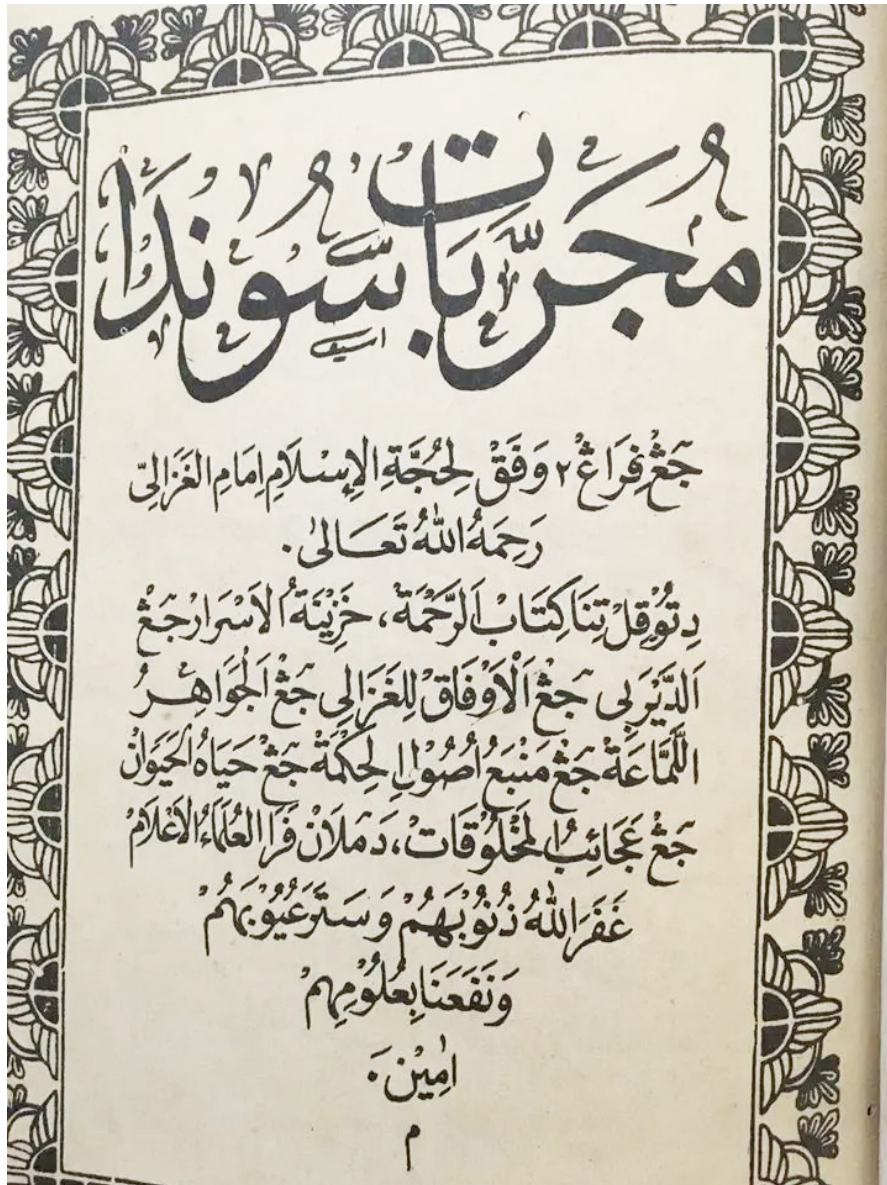 مُجَرَّبَاتْ سُّونْدَا
جَڠْ فِرَاڠْ٢ وَفَقْ لِحُجَّةِ الْإِسْلَامِ اِمَامِ الْغَزَالِيّ
رَحِمَهُ اللّٰهُ تَعَالٰى.
دِتُوْقِلْ تِنَا كِتَابْ اَلرَّحْمَةْ، خَزِيْنَةُ الْاَسْرَارْ جَڠْ
اَلدَّيْرَبِى جَڠْ اَلْاَوْفَاقْ لِلْغَزَالِى جَڠْ اَلْجَوَاهِرُ
اللَّمَّاعَةْ جَڠْ مَنْبَعُ اُصُوْلِ الْحِكْمَةْ جَڠْ حَيَاةُ الْحَيَوَانْ
جَڠْ عَجَائِبُ الْمَخْلُوْقَاتْ، دَمَلَانْ فَرَا الْعُلَمَاءُ الْاَعْلَامْ
غَفَرَ اللّٰهُ ذُنُوْبَهُمْ وَسَتَرَ عُيُوْبَهُمْ
وَنَفَعَنَا بِعُلُوْمِهِمْ
اٰمِيْنَ.
م